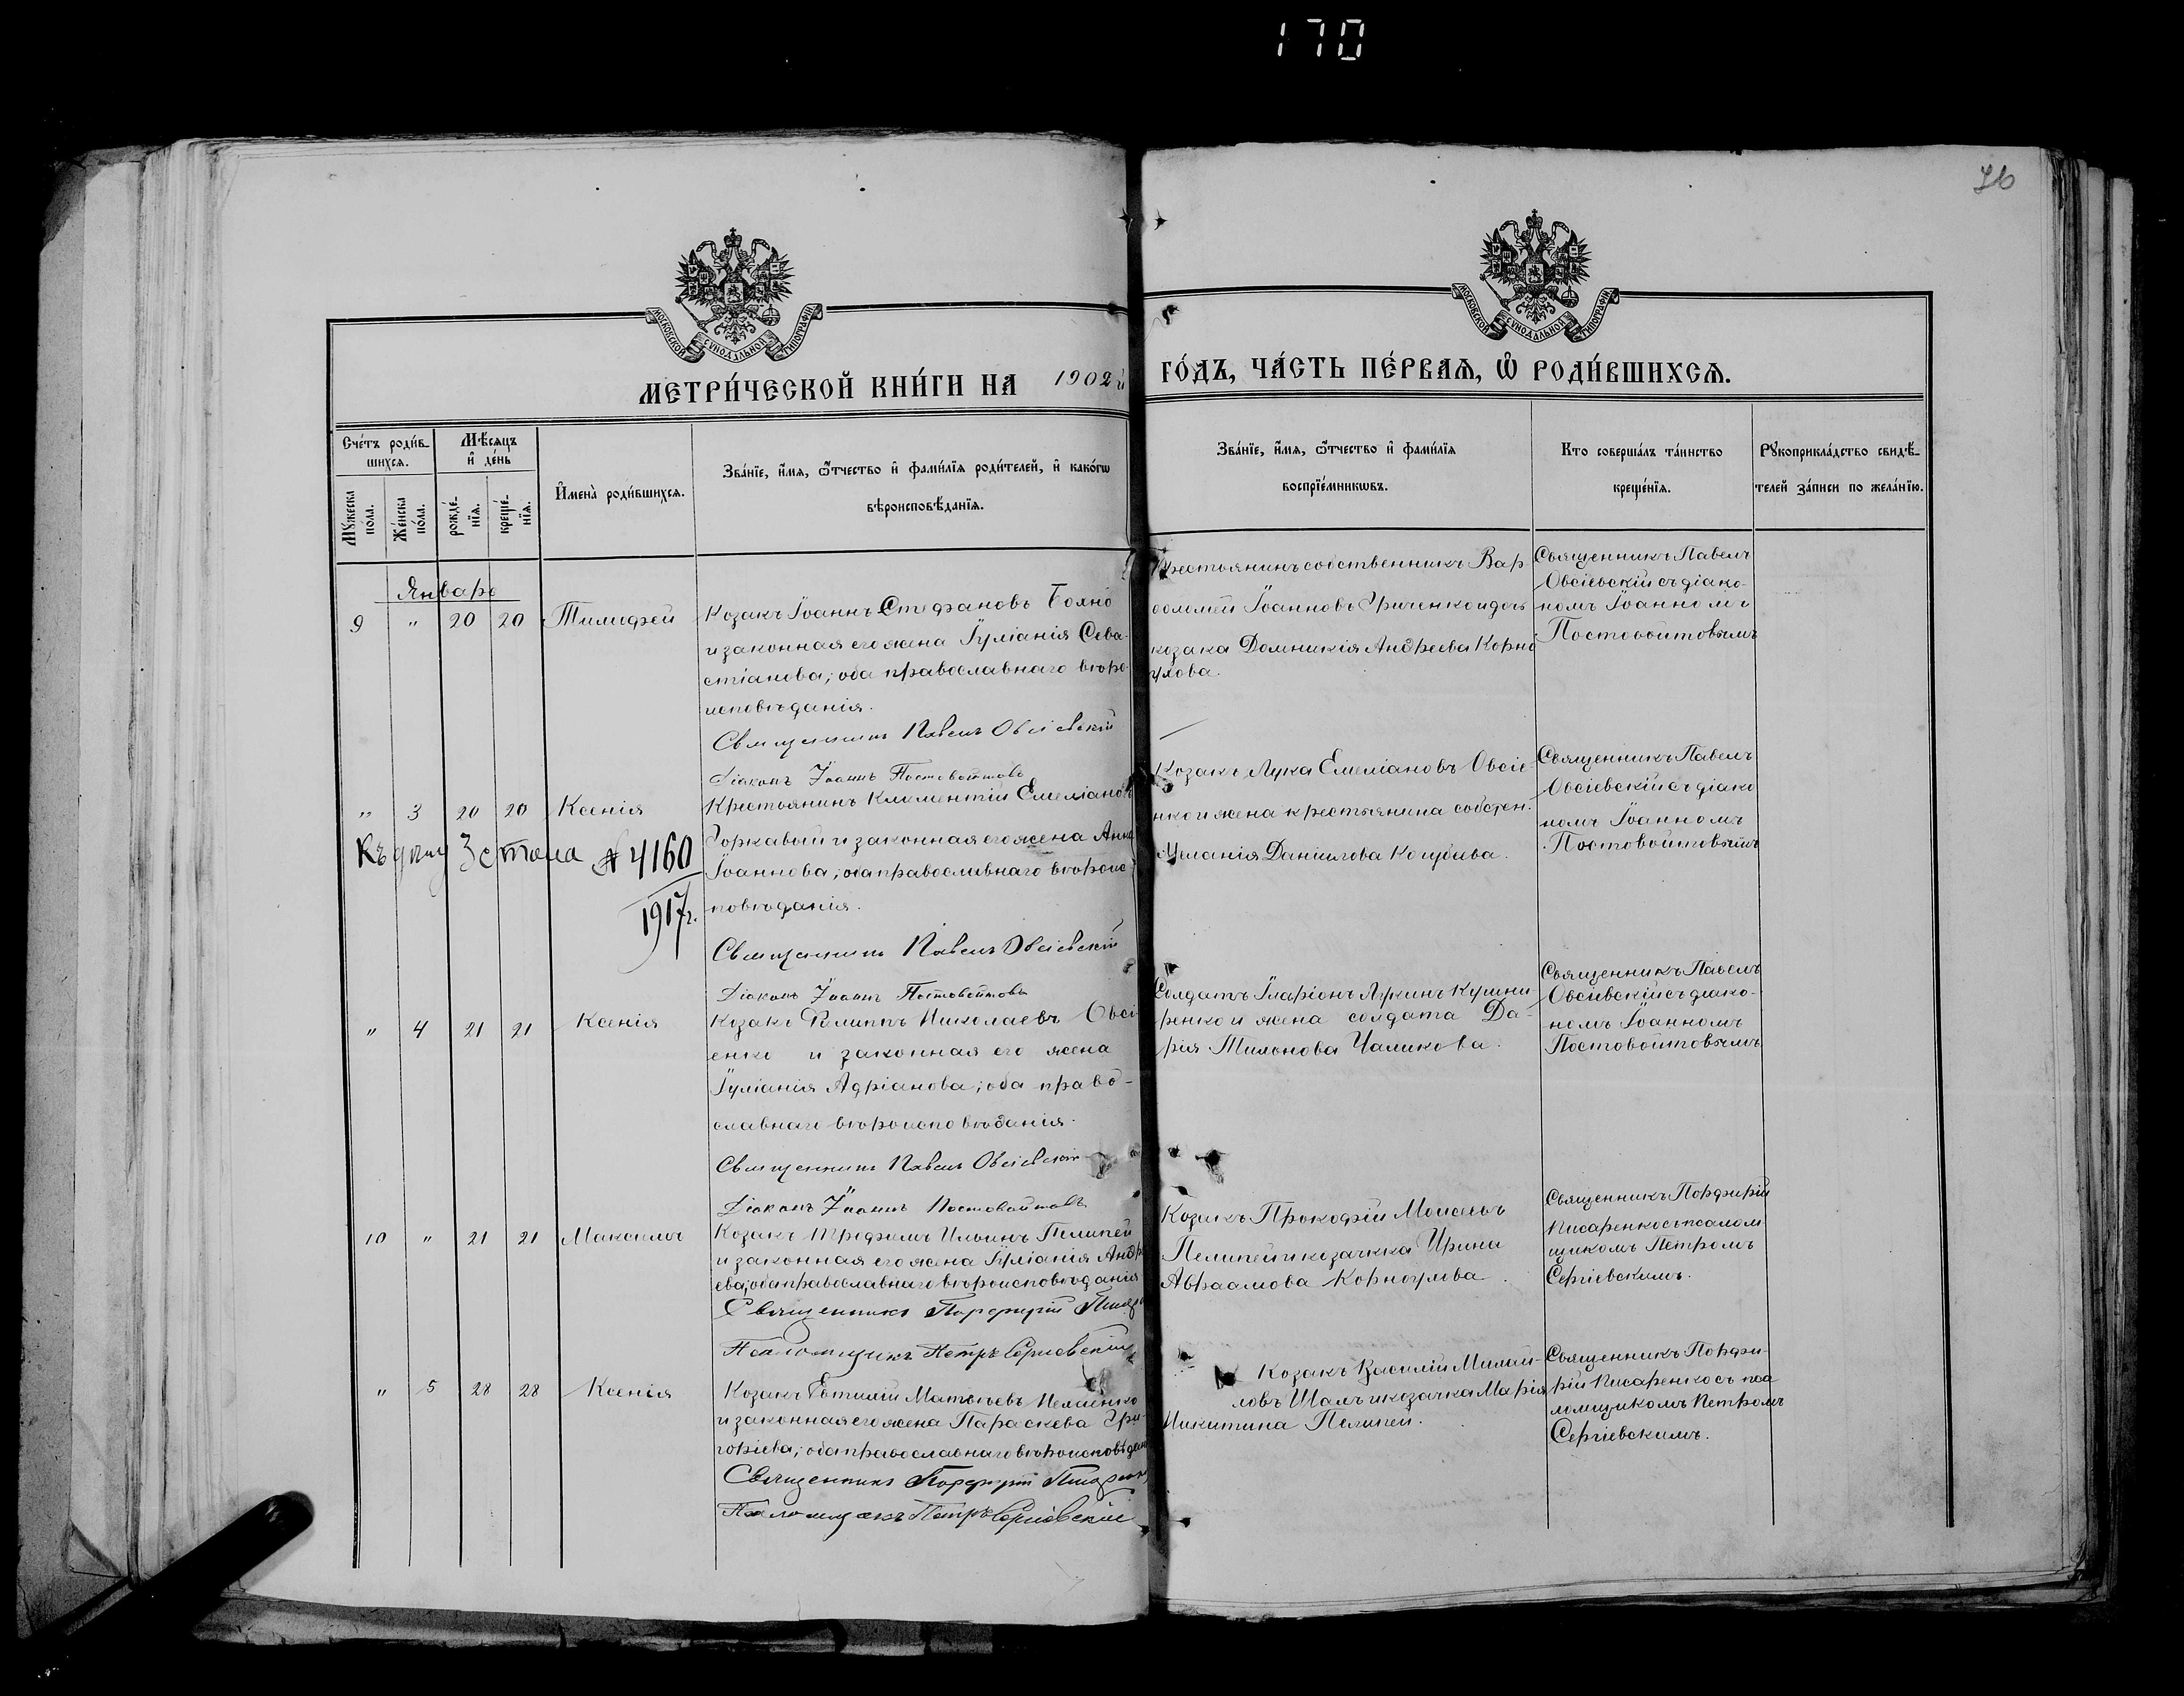 170
76
МОСКОВСКОЙ СѴНОДАЛЬНОЙ ТИПОГРАФІИ
МОСКОВСКОЙ СѴНОДАЛЬНОЙ ТИПОГРАФІИ
МЕТРИ́ЧЕСКОЙ КНИ́ГИ НА 1902й
ГО́ДЪ, ЧА́СТЬ ПЕ́РВАЯ, Ѡ РОДИ́ВШИХСЯ.
Сче́тъ роди́в-
шихся.
Мѣ́сяцъ
и де́нь
Мꙋжеска по́ла.
Же́нска по́ла.
рожде́-
нїя.
креще́-
нїя.
Имена̀ роди́вшихся.
Зва́нїе, и́мя, ѻ́тчество и фами́лїя роди́телей, и како́гѡ
вѣроисповѣ́данїя.
Зва́нїе, и́мя, ѻ́тчество и фами́лїя
воспрїе́мникѡвъ.
Кто соверша́лъ та́инство
креще́нїя.
Рꙋкоприкла́дство свидѣ́-
телей за́писи по жела́нїю.
Январь
9 " 20 20 Тимофей
Козакъ Іоаннъ Стефановъ Бояно
и законная его жена Іуліанія Сева-
стіанова; оба православнаго вѣро-
исповѣданія.
Священникъ Павелъ Овсіевскій
Діаконъ Іоаннъ Постовойтовъ
Крестьянинъ собственникъ Вар-
ѳоломей Іоанновъ Гриченко и дочь
козака Домникія Андреева Корно
ухова.
Священникъ Павелъ
Овсіевскій съ діако-
номъ Іоанномъ
Постовойтовымъ
" 3 20 20 Ксенія
Къ дѣлу 3 стола № 4160
1917 г.
Крестьянинъ Климентій Емеліановъ
Горкавый и законная его жена Анна
Іоаннова; оба православнаго вѣроис-
повѣданія.
Священникъ Павелъ Овсіевскій
Діаконъ Іоаннъ Постовойтовъ
Козакъ Лука Емеліановъ Овсіе-
нко и жена крестьянина собствен.
Меланія Даніилова
Священникъ Павелъ
Овсіевскій съ діако
номъ Іоанномъ
Постовойтовымъ
" 4 21 21 Ксенія
Козакъ Филиппъ Николаевъ Овсі-
енко и законная его жена
Іуліанія Адріанова; оба право-
славнаго вѣроисповѣданія.
Священникъ Павелъ Овсіевскій
Діаконъ Іоаннъ Постовойтовъ
Солдатъ Иларіонъ Лукинъ Кушни-
ренко и жена солдата Да-
рія
Священникъ Павелъ
Овсіевскій съ діако-
номъ Іоанномъ
Постовойтовымъ
10 " 21 21 Максимъ
Козакъ Трифилъ Ильинъ Пелипей
и законная его жена Іуліанія Андре
ева; оба православнаго вѣроисповѣданія
Священникъ Порфирій
Псаломщикъ Петръ Сергіевскій
Козакъ Прокофій Моисеевъ
Пелипей и козачка Ирина
Авраамова Корноухова.
Священникъ Порфирій
Писаренко съ псалом
щикомъ Петромъ
Сергіевскимъ.
" 5 28 28 Ксенія
Козакъ Евтихій Матѳіевъ
и законная его жена Параскева Гри-
горіева; оба православнаго вѣроисповѣдан
Священникъ Порфирій Писаренко
Псаломщикъ Петръ Сергіевскій
Козакъ Василій Михаи-
ловъ Шалъ и козачка Марія
Никитина Пелипей.
Священникъ Порфи-
рій Писаренко съ пса
ломщикомъ Петромъ
Сергіевскимъ.